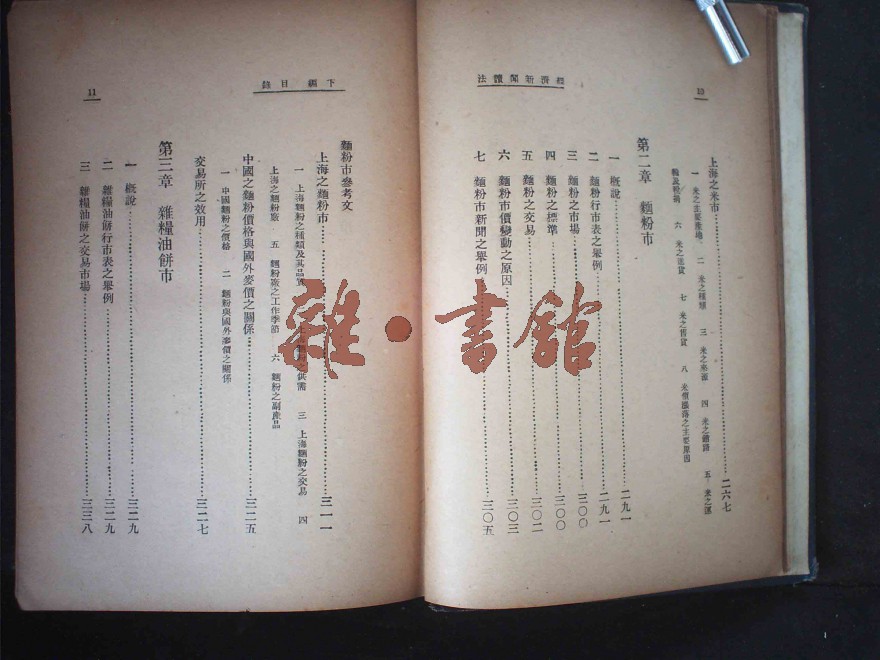 經濟新聞讀法
10
上海之米市……二六七
一 米之主要產場 二 米之種類 三 米之來源 四 米之銷路 五 米之運
輸及稅捐 六 米之進貨 七 米之囤貨 八 米價漲落之主要原因
第二章 麵粉市
一 概說……二九一
二 麵粉行市表之舉例……二九一
三 麵粉之市場……三〇〇
四 麵粉之標準……三〇〇
五 麵粉之交易……三〇二
六 麵粉市價變動之原因……三〇三
七 麵粉市新聞之舉例……三〇五
下編 目錄
11
麵粉市參考文
上海之麵粉市……三一一
一 上海麵粉之種類及其品質 二 上海麵粉之供需 三 上海麵粉之交易 四
上海之麵粉廠 五 麵粉廠之工作季節 六 麵粉之副產品
中國之麵粉價格與國外麥價之關係……三二五
一 中國麵粉之價格 二 麵粉與國外麥價之關係
交易所之效用……三二七
第三章 雜糧油餅市
一 概說……三二九
二 雜糧油餅行市表之舉例……三二九
三 雜糧油餅之交易市場……三三八
雜·書館